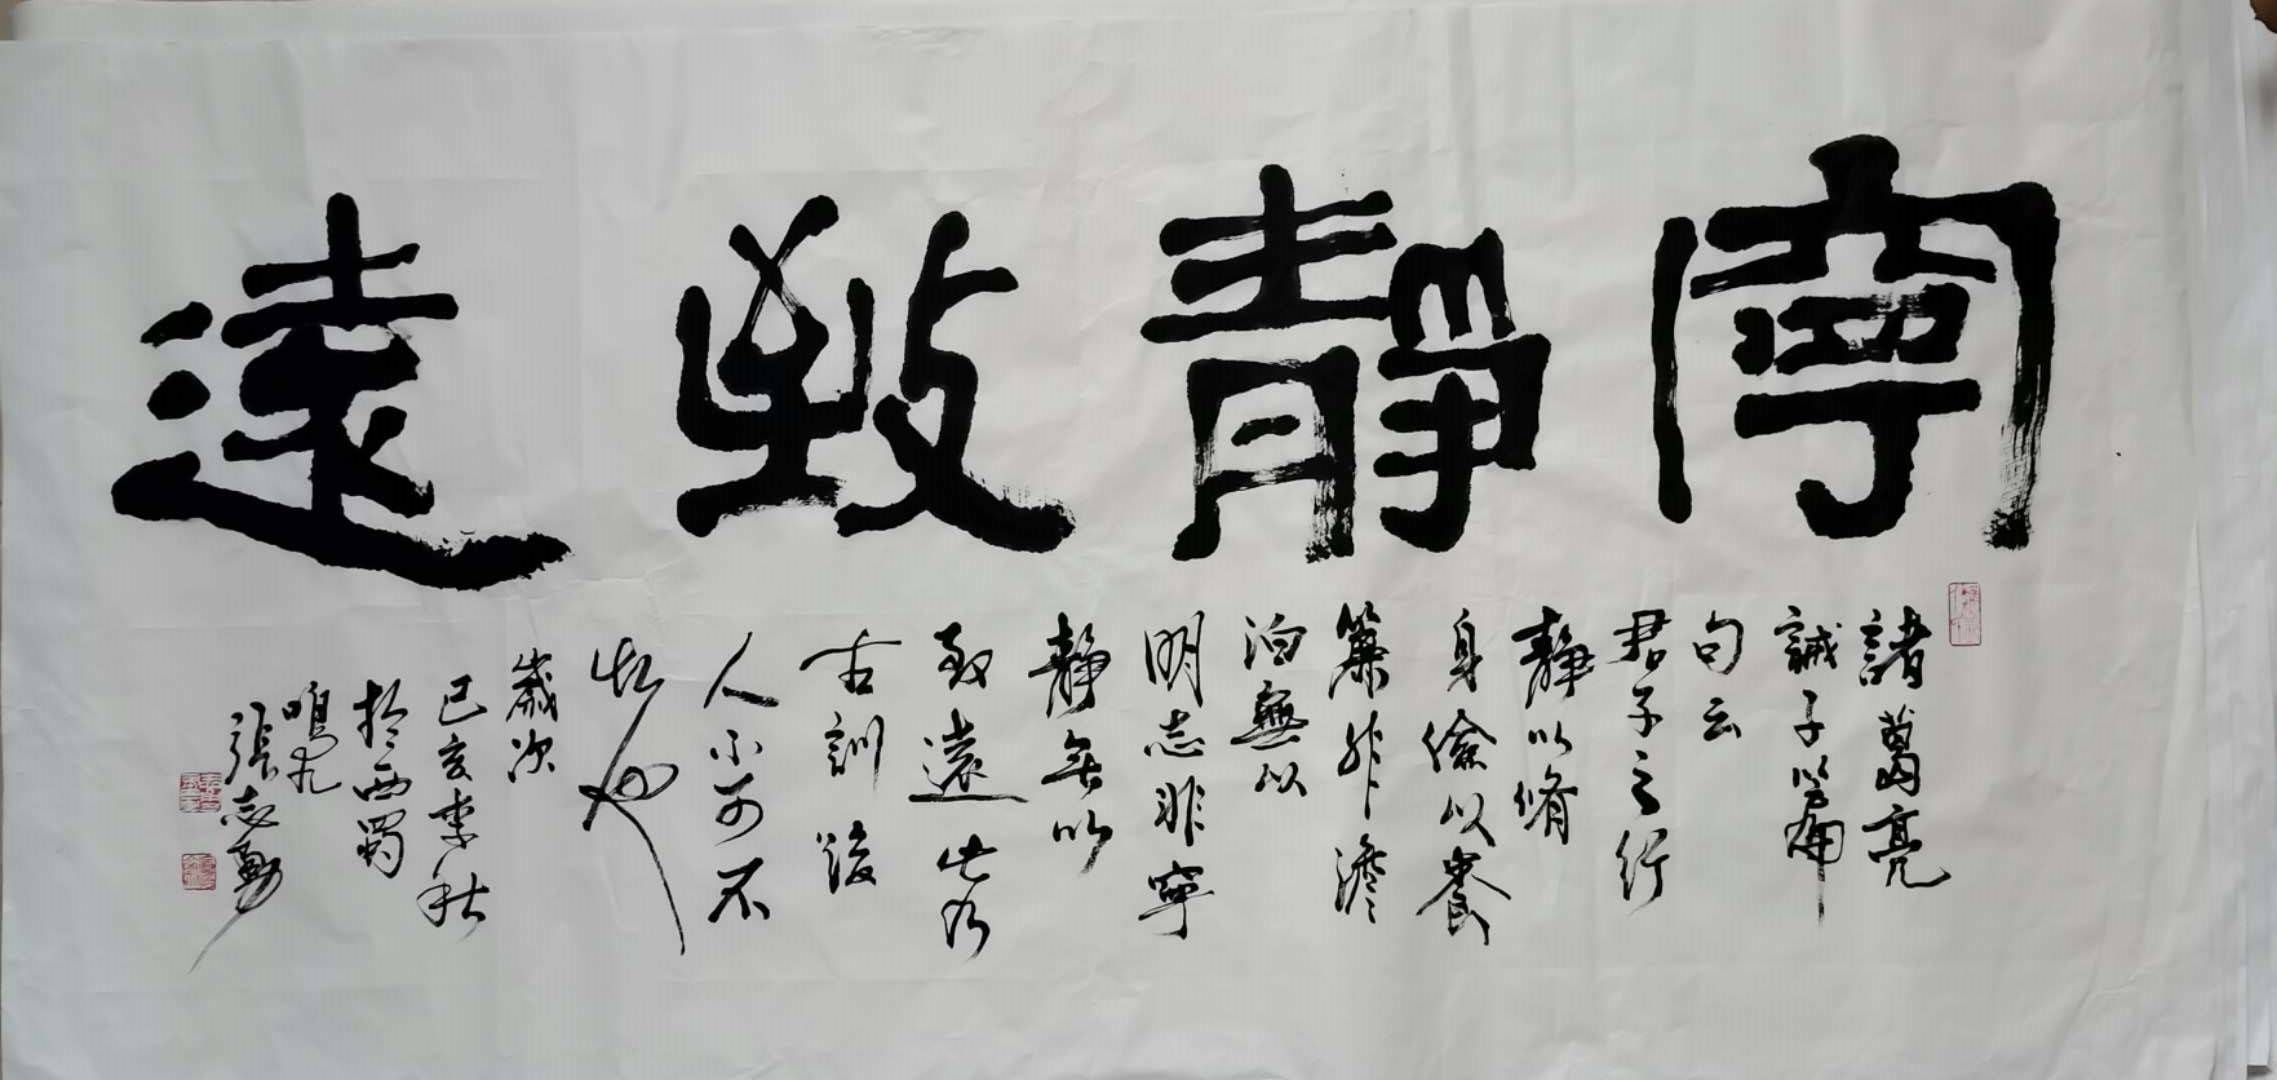 寧靜致遠
諸葛亮
誡子篇
句云
君子之行
靜以脩
身儉以養
廉非澹
泊無以
明志非寧
靜無以
致遠此乃
古訓後
人不可不
也
歲次
己亥季秋
於西蜀
鳴九
張志勇